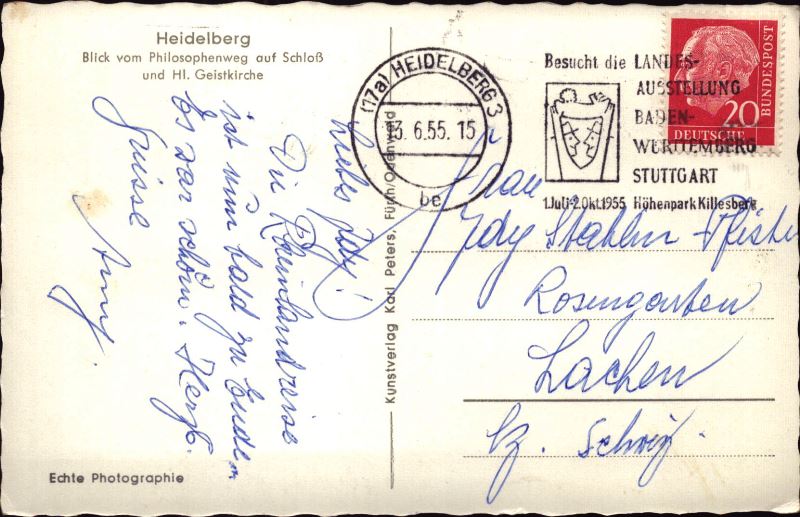 Heidelberg
Blick vom Philosophenweg auf Schloß
und Hl. Geistkirche
Liebes Idy!
Die Rheinlandreise
ist nun bald zu Ende.
Es war schön. Herzl.
Grüsse
Echte Photographie
Kunstverlag Karl Peters, Fürth/Odenwald
(17a) HEIDELBERG 3
13.6.55.15
be
Besucht die LANDES-
AUSSTELLUNG
BADEN-
WÜRTTEMBERG
STUTTGART
1.Juli-2.Okt.1955 Höhenpark Killesberg
20
DEUTSCHE
BUNDESPOST
Frau
Idy Stählin-Pfister
Rosengarten
Lachen
Kz. Schwyz.